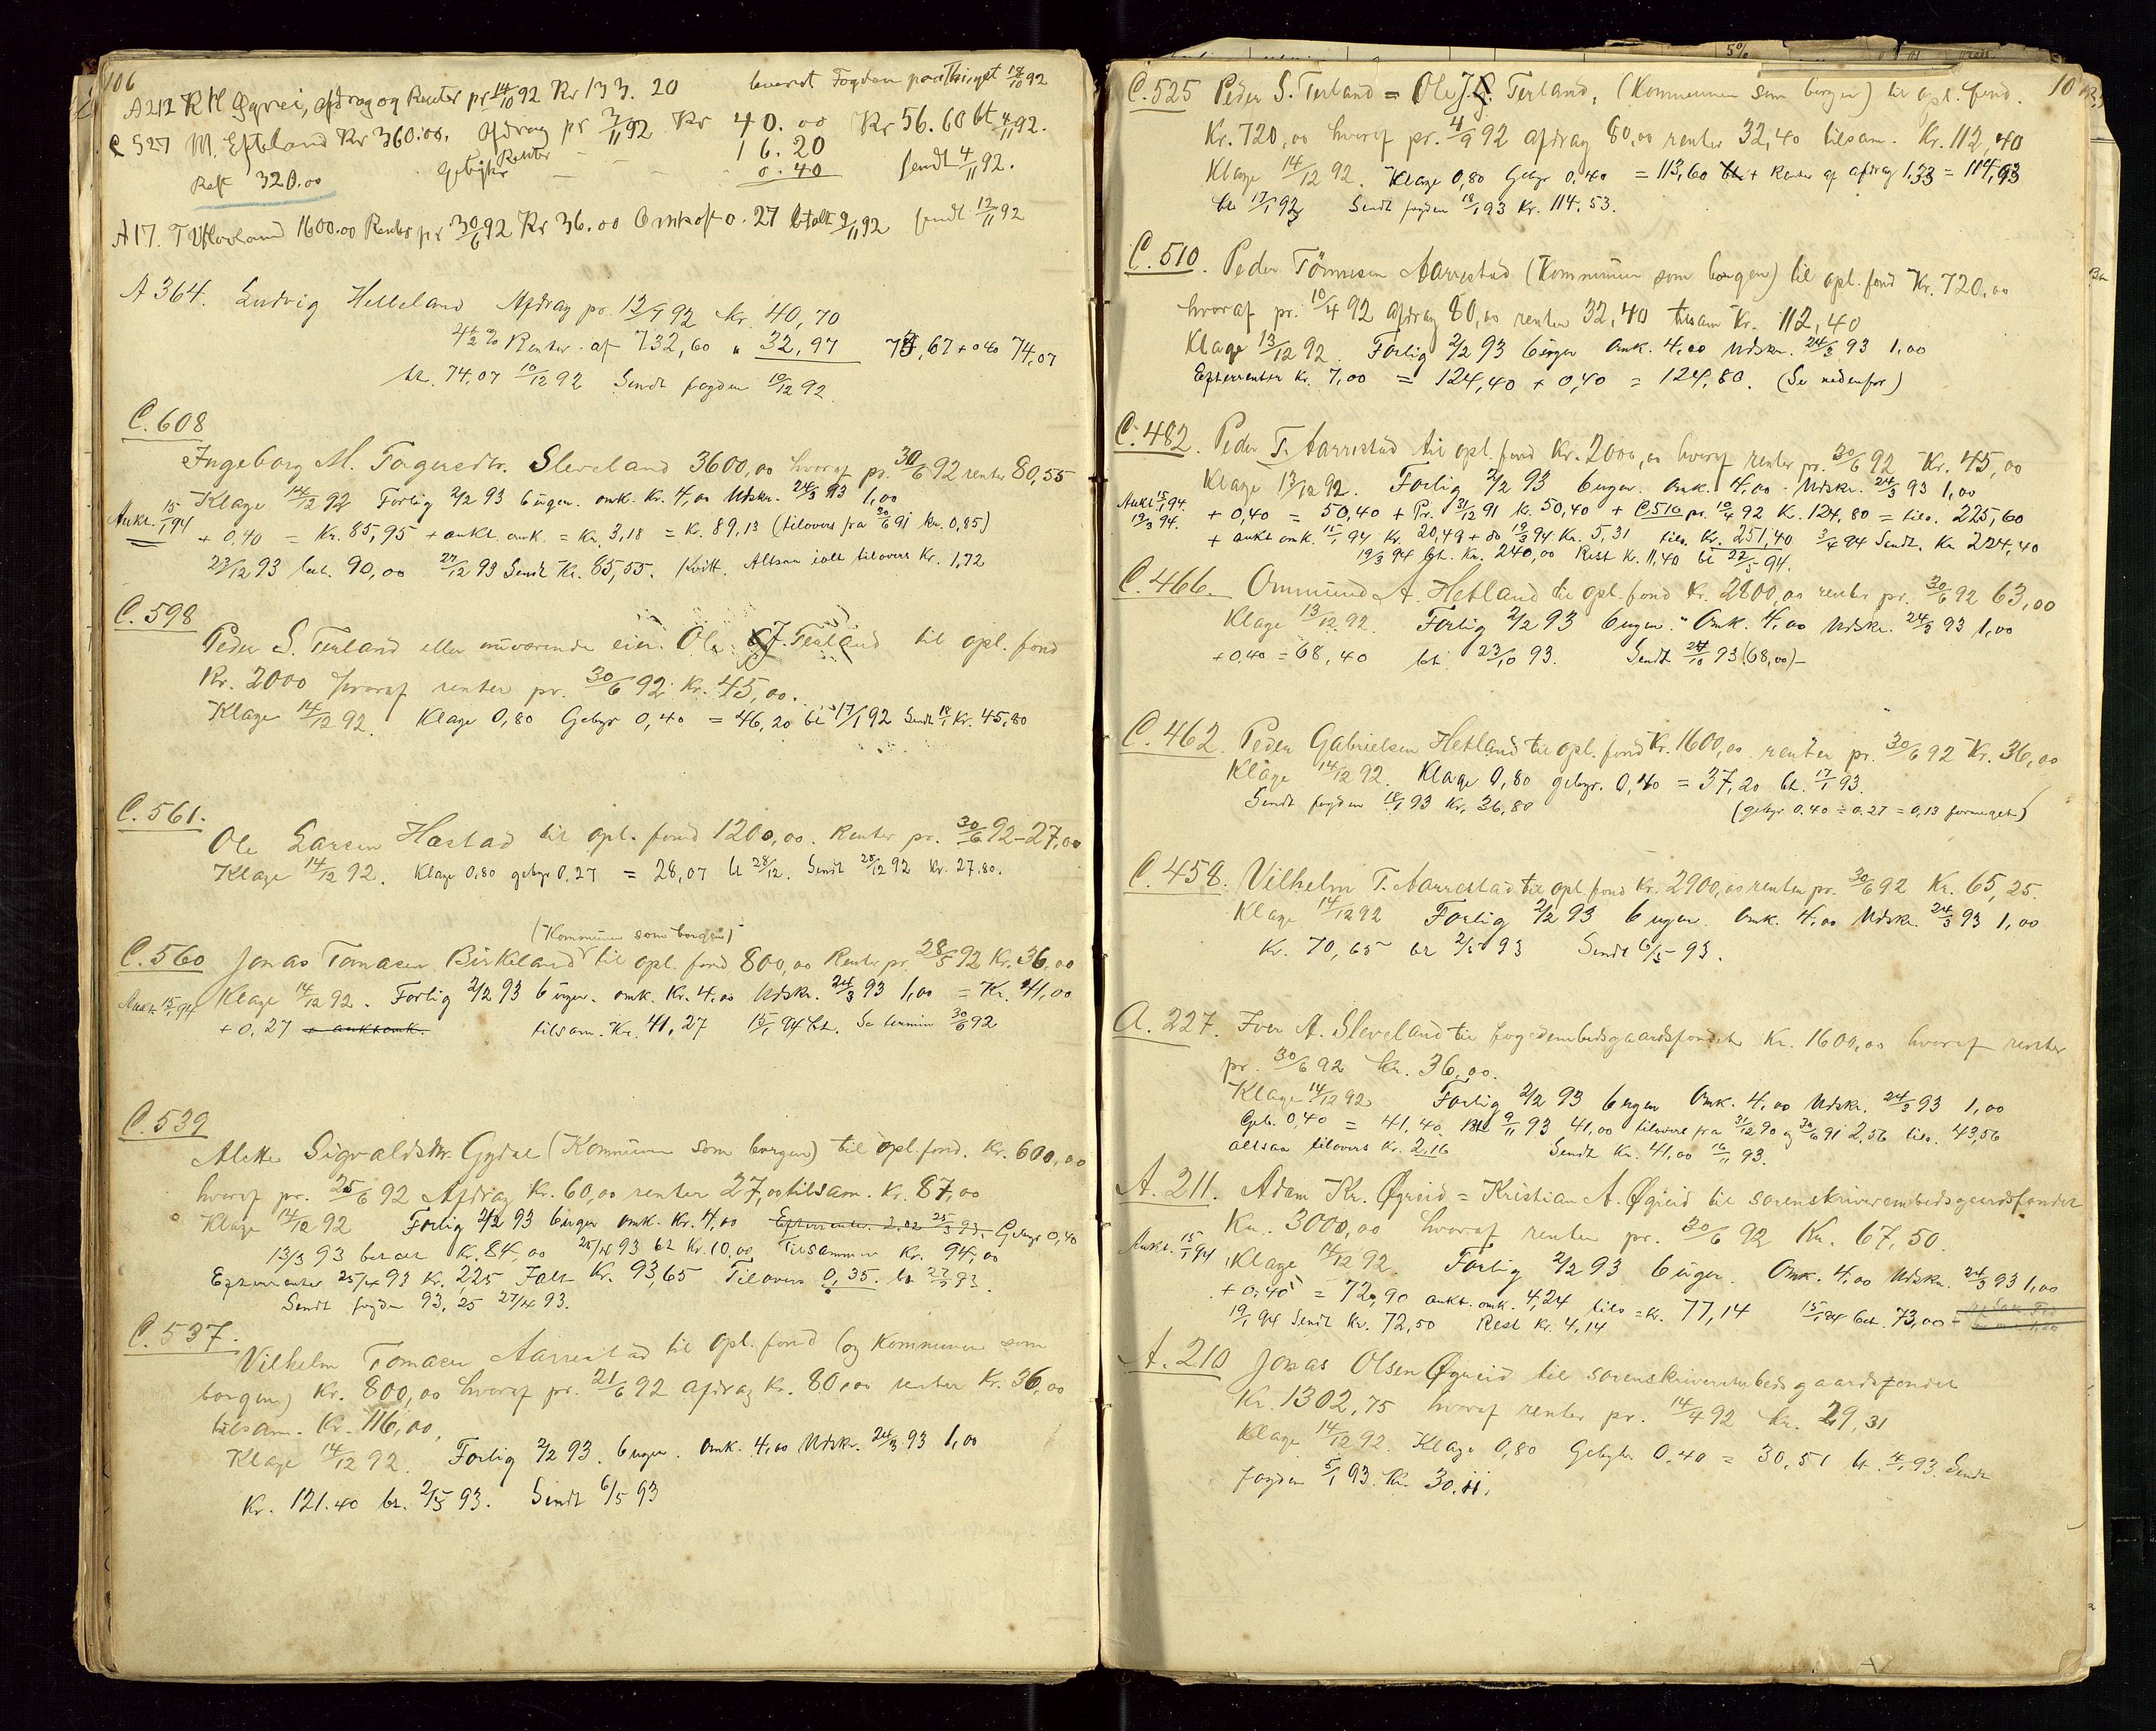 106
A 212 K H Øgrei, afdrag og Renter pr 14/10 92 Kr 133.20 leveret Fogden paa Thinget 18/10 92
C 527 M. Efteland Kr 360.00. Afdrag pr 3/11 92 Kr 40.00 Kr 56.60 bt 4/11 92.
Renter - - 16.20
Rest 320.00 Gebyhr - - 0.40 sendt 4/11 92.
A 17. T Hovland 1600.00 Renter pr 30/6 92 Kr 36.00 Omkost 0.27 betalt 9/11 92 sendt 12/11 92
A 364. Ludvig Helleland Afdrag pr. 12/9 92 kr. 40,70
4½ % Renter af 732,60 " 32,97 73,67 + 0 40 74,07
bt. 74.07 10/12 92 Sendt fogden 10/12 92.
C. 608
Ingeborg M. Tageredtr. Sleveland 3600,00 hvoraf pr. 30/6 92 renter 80,55
Klage 14/12 92 Forlig 2/2 93 6 uger. omk. Kr. 4,00 Udskr. 24/3 93 1,00
Aukt. 15/1 94 + 0,40 = Kr. 85,95 + aukt. omk. = Kr. 3,18 = Kr. 89,13 (tilovers fra 30/6 91 Kr. 0,85)
23/12 93 bet. 90,00 27/12 93 Sendt Kr. 85,55. Kvitt. Altsaa ialt tilovers Kr. 1,72
C. 598
Peder S. Terland eller nuværende eier Ole J. Terland til opl. fond
Kr. 2000 hvoraf renter pr. 30/6 92 Kr. 45,00.
Klage 14/12 92. Klage 0,80 Gebyr 0,40 = 46,20 bt 17/1 92 Sendt 18/1 Kr. 45,80
C. 561.
Ole Larsen Hæstad til opl. fond 1200,00. Renter pr. 30/6 92 - 27,00
Klage 14/12 92. Klage 0,80 gebyr 0,27 = 28,07 bt 28/12. Sendt 28/12 92 Kr. 27.80.
(Kommunen som borgen)
C. 560 Jonas Tomasen Birkeland til opl. fond 800,00 Renter pr. 28/5 92 Kr. 36,00
Aukt. 15/1 94 Klage 14/12 92. Forlig 2/2 93 6 uger. omk. Kr. 4,00 Udskr. 24/3 93 1,00 = Kr. 41,00
+ 0,27 + auktomk. tilsam. Kr. 41,27 15/1 94 bt. Se termin 30/6 92
C. 539
Alette Sigvaldsdtr. Gydal (Kommunen som borgen) til opl. fond. Kr. 600,00
hvoraf pr. 25/6 92 Afdrag Kr. 60,00 renter 27,00 tilsam. Kr. 87,00
Klage 14/12 92 Forlig 2/2 93 6 uger omk. Kr. 4,00 Efterrenter 2,22 25/3 93. Gebyr 0,40
13/3 93 betalt Kr. 84,00 25/4 93 bt Kr. 10,00 Tilsammen Kr. 94,00
Efterrenter 25/4 93 Kr. 2,25 Ialt Kr. 93,65 Tilovers 0,35. bt 27/5 93.
Sendt fogden 93,25 27/4 93.
C. 537.
Vilhelm Tomasen Aarrestad til opl. fond (og Kommunen som
borgen) Kr. 800,00 hvoraf pr. 21/6 92 afdrag Kr. 80,00 renter Kr. 36,00
tilsam. Kr. 116,00,
Klage 14/12 92. Forlig 2/2 93. 6 uger. omk. 4,00 Udskr. 24/3 93 1,00
Kr. 121.40 bt. 2/5 93. Sendt 6/5 93
10
C. 525 Peder S. Terland = Ole J. Terland, (Kommunen som borgen) til opl. fond.
Kr. 720,00 hvoraf pr. 4/9 92 afdrag 80,00 renter 32,40 tilsam. Kr. 112,40
Klage 14/12 92. Klage 0,80 Gebyr 0,40 = 113,60 + Renter af afdrag 1,33 = 114,93
bt 17/1 93 Sendt fogden 18/1 93 Kr. 114,53.
C. 510. Peder Tönnesen Aarrestad (Kommunen som borgen) til opl. fond Kr. 720,00
hvoraf pr. 10/4 92 afdrag 80,00 renter 32,40 tilsam Kr. 112,40
Klage 13/12 92. Forlig 2/2 93 6 uger omk. 4,00 Udskr. 24/3 93 1,00
Efterrenter Kr. 7,00 = 124,40 + 0,40 = 124,80. (Se nedenfor)
C. 482. Peder T. Aarrestad til opl. fond Kr. 2000,00 hvoraf renter pr. 30/6 92 Kr. 45,00
Klage 13/12 92. Forlig 2/2 93 6 uger. omk. 4,00. Udskr. 24/3 93 1,00
Aukt 15/1 94. + 0,40 = 50,40 + Pr. 31/12 91 Kr. 50,40 + C 510 pr. 10/4 92 Kr. 124,80 = tils. 225,60
19/3 94. + aukt omk. 15/1 94 Kr. 20,49 + do 19/3 94 Kr. 5,31 tils. Kr. 251,40 3/4 94 Sendt. Kr 224,40
19/3 94 bt. Kr. 240,00 Rest Kr. 11,40 bt 22/5 94.
C. 466. Ommund A. Hetland til opl. fond Kr. 2800,00 renter pr. 30/6 92 63,00
Klage 13/12 92. Forlig 2/2 93 6 uger. Omk. 4,00 Udskr. 24/3 93 1,00
+ 0,40 = 68,40 bt. 23/10 93. Sendt 24/10 93 (68,00) -
C. 462. Peder Gabrielsen Hetland til opl. fond Kr. 1600,00 renter pr. 30/6 92 Kr. 36,00
Klage 14/12 92. Klage 0,80 gebyr. 0,40 = 37,20 bt. 17/1 93.
Sendt fogden 18/1 93 Kr. 36,80 (gebyr 0,40 ÷ 0,27 = 0,13 formeget)
C. 458. Vilhelm T. Aarrestad til opl. fond Kr. 2900,00 renter pr. 30/6 92 Kr. 65,25.
Klage 14/12 92 Forlig 2/2 93 6 uger. Omk. 4,00 Udskr. 24/3 93 1,00
Kr. 70,65 bt 2/5 93 Sendt 6/5 93.
A. 227. Iver A. Sleveland til fogedembedsgaardsfondet Kr. 1600,00 hvoraf renter
pr. 30/6 92 Kr. 36,00.
Klage 14/12 92 Forlig 2/2 93 6 uger Omk. 4,00 Udskr. 24/3 93 1,00
Geb. 0,40 = 41,40 Bt 9/11 93 41,00 tilovers fra 31/12 90 og 30/6 91 2,56 tils. 43,56
altsaa tilovers Kr. 2,16 Sendt Kr. 41,00 16/11 93.
A. 211. Adam Kr. Øgreid = Kristian A. Øgreid til sorenskriverembedsgaardsfondet
Kr. 3000,00 hvoraf renter pr. 30/6 92 Kr. 67,50.
Aukt. 15/1 94 Klage 14/12 92. Forlig 2/2 93 6 uger. Omk. 4,00 Udskr. 24/3 93 1,00
+ 0,40 = 72,90 aukt. omk. 4,24 tils = Kr. 77,14 15/1 94 bet. 73,00
19/1 94 Sendt Kr. 72,50 Rest Kr. 4,14
A. 210 Jonas Olsen Øgreid til sorenskriverembedsgaardsfondet
Kr. 1302,75 hvoraf renter pr. 14/4 92 Kr. 29,31
Klage 14/12 92. Klage 0,80 Gebyhr 0,40 = 30,51 bt. 4/1 93. Sendt
fogden 5/1 93. Kr. 30.11.